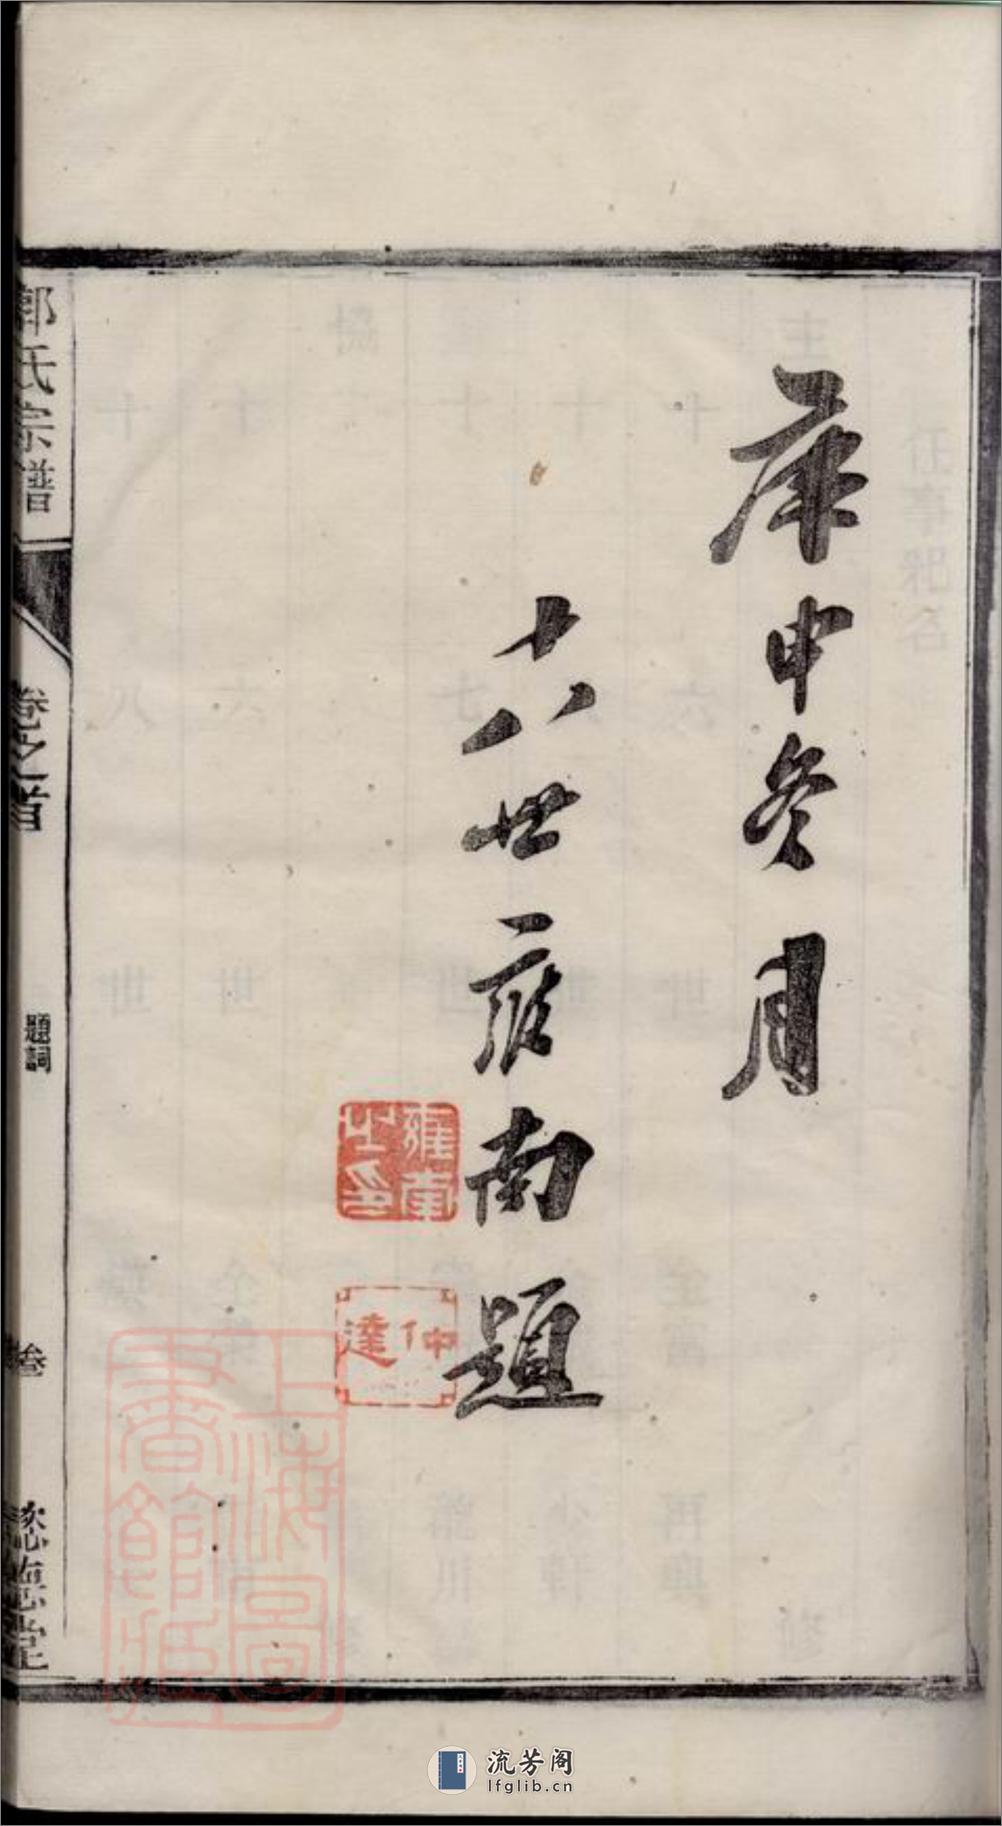 庚申冬月
十六世雍南題
雍南之印
仲達
郭氏宗譜
卷之首
題詞
叁
懿德堂
上海圖書館藏
流芳阁
lfglib.cn